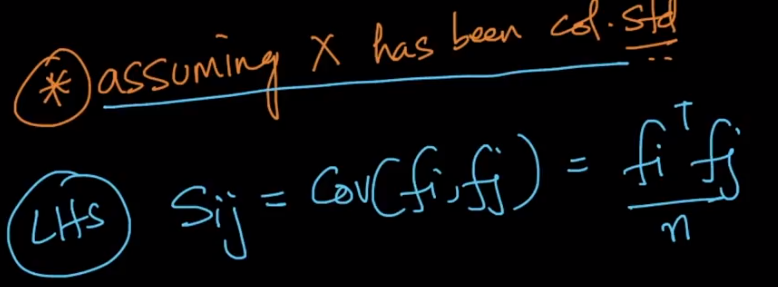 * assuming X has been col. std
LHS Sij = Cov(fi, fj) = fiᵀfj / n